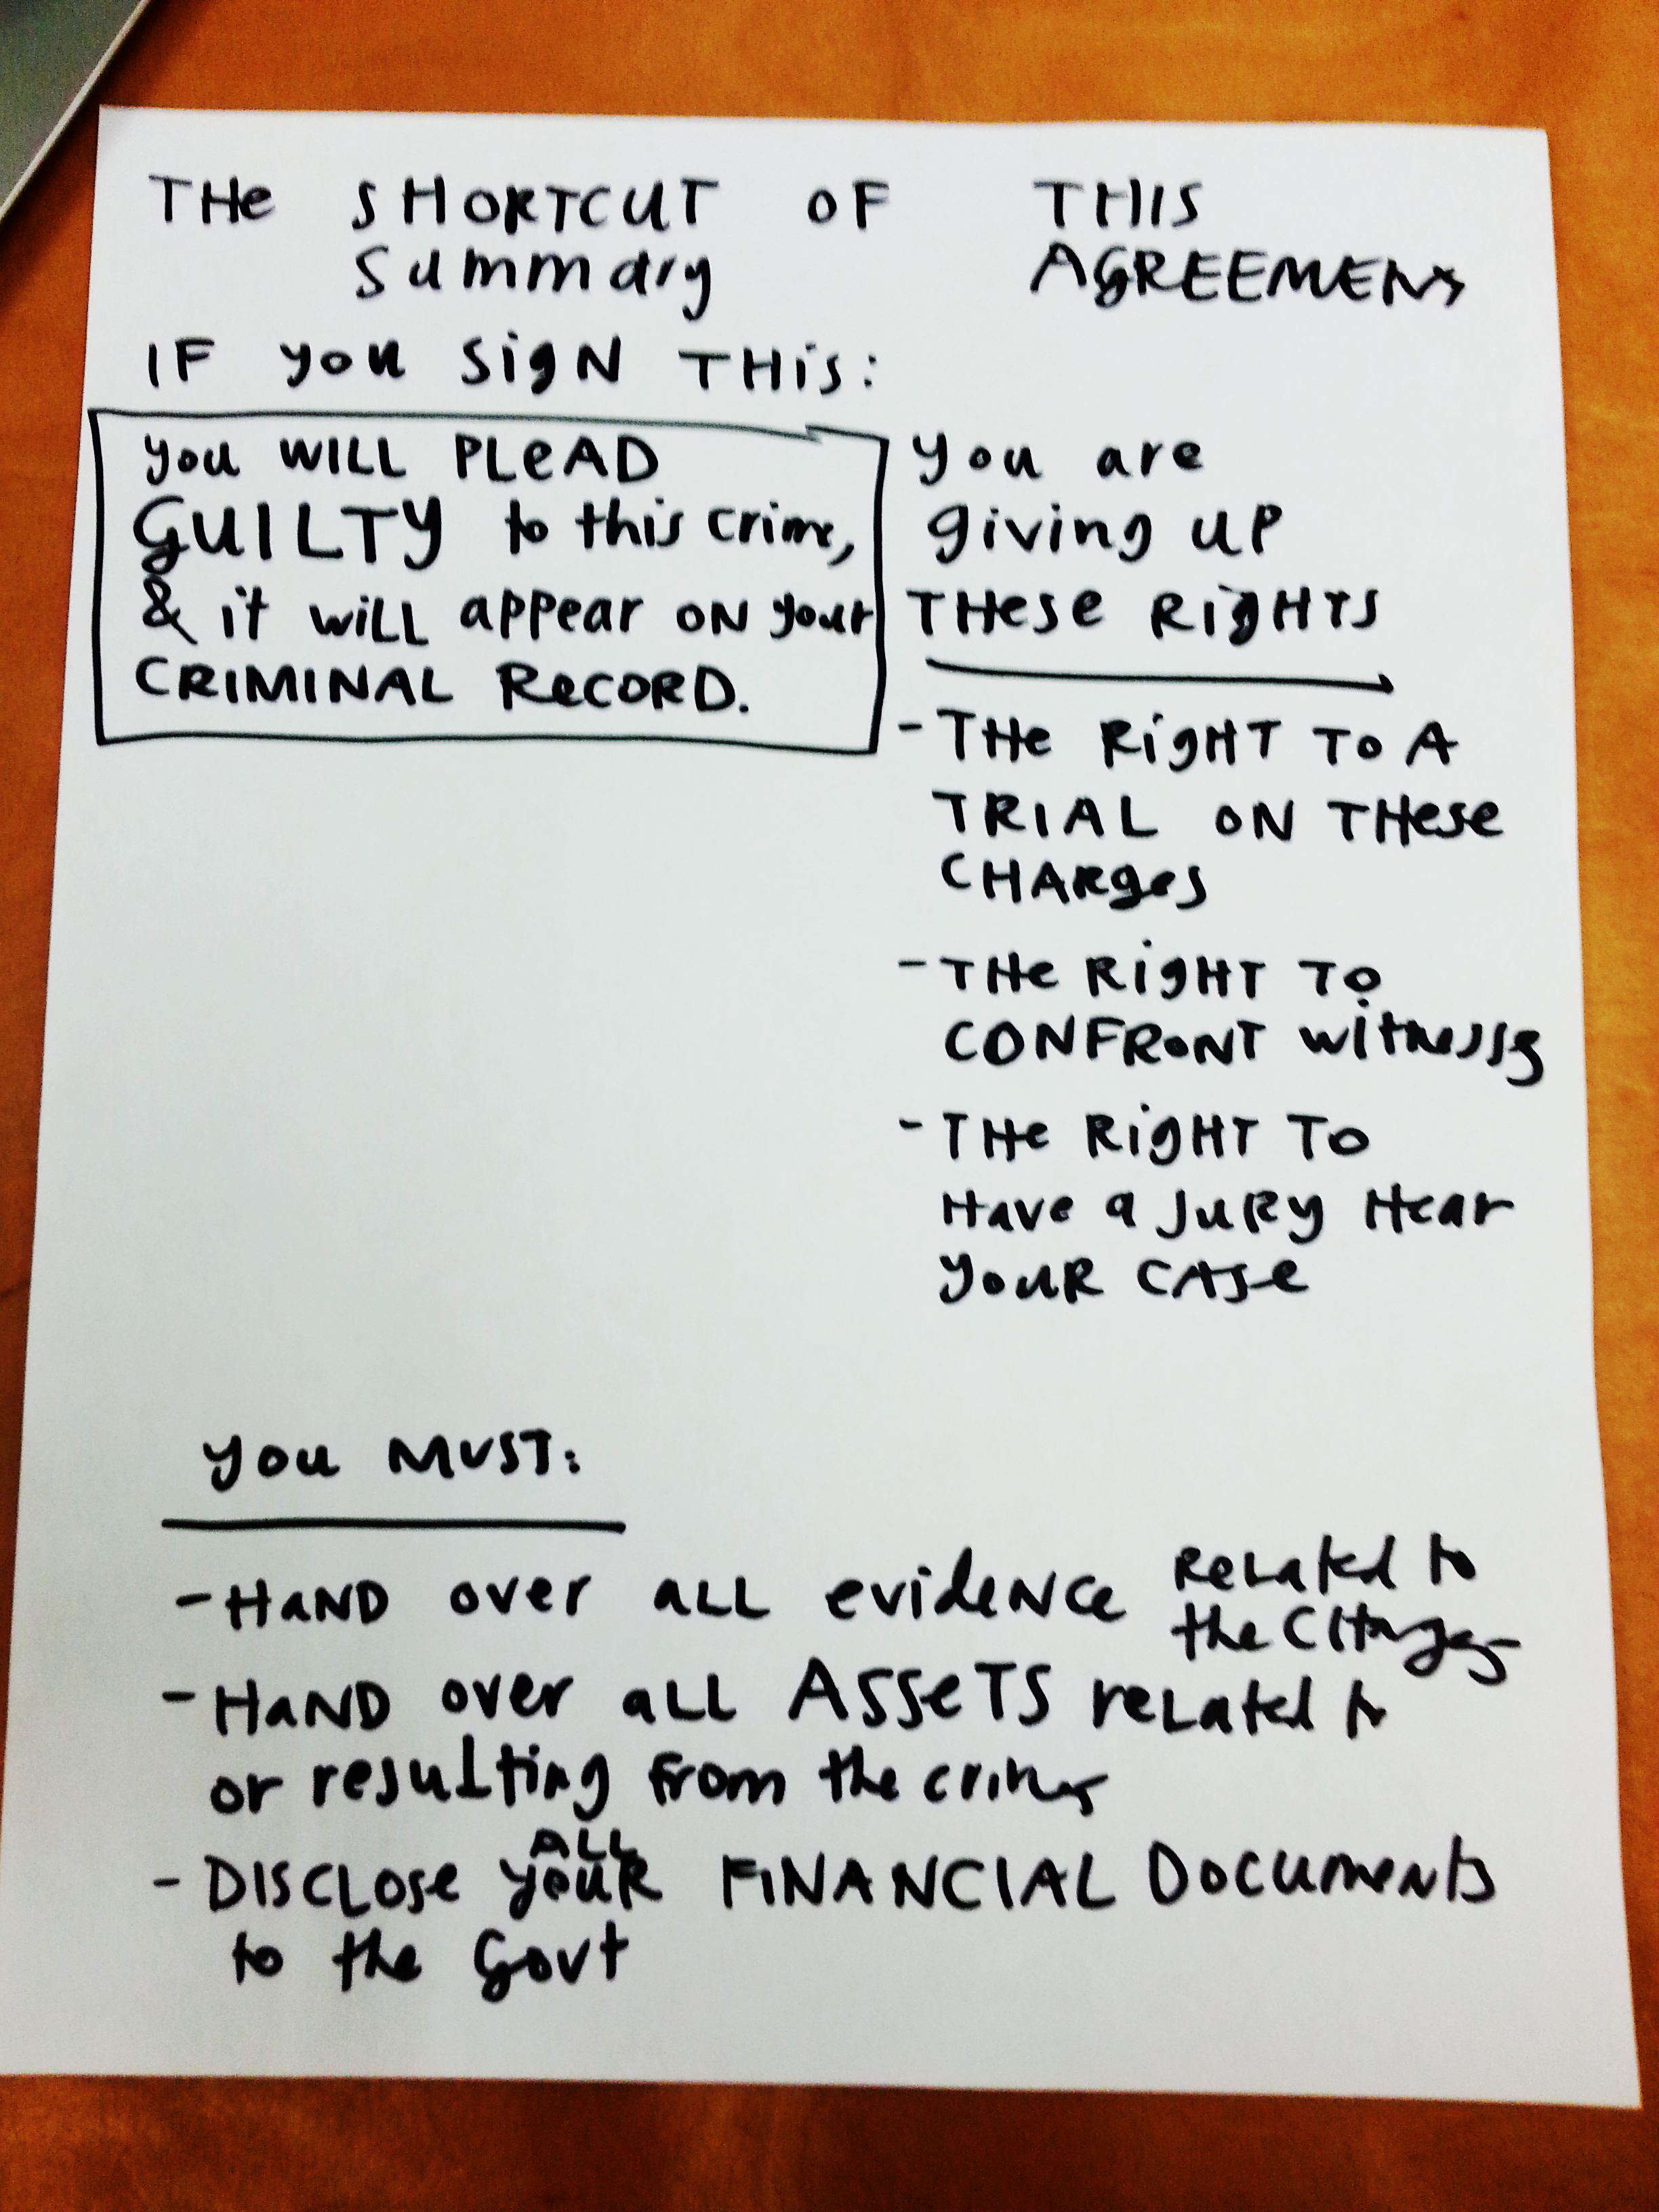 THE SHORTCUT OF THIS
Summary AGREEMENT
IF you SigN THIS:
you WILL PLEAD
GUILTY to this crime,
& it will appear ON your
CRIMINAL RECORD.
you are
giving up
THESE RIGHTS
- THE RIGHT TO A
TRIAL ON THESE
CHARges
- THE RIGHT TO
CONFRONT witnesses
- THE RIGHT TO
Have a JURY Hear
YOUR CASE
you MUST:
- HaND over aLL evideNce ReLated to
the CHarges
- HaND over aLL ASSETS reLated to
or resulting from the crimes
ALL
- DISCLOSE youR FINANCIAL DOCUMENTS
to the Govt